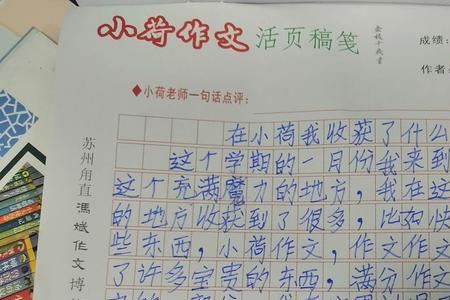 小荷作文 活页稿笺
成绩:
作者:
◆小荷老师一句话点评:
苏州甪直
作文博
在小荷我收获了什么
这个学期的一月份我来到
这个充满魔力的地方，我在这
的地方收获到了很多，比如快
些东西，小荷作文，作文作文
了许多宝贵的东西，满分作文